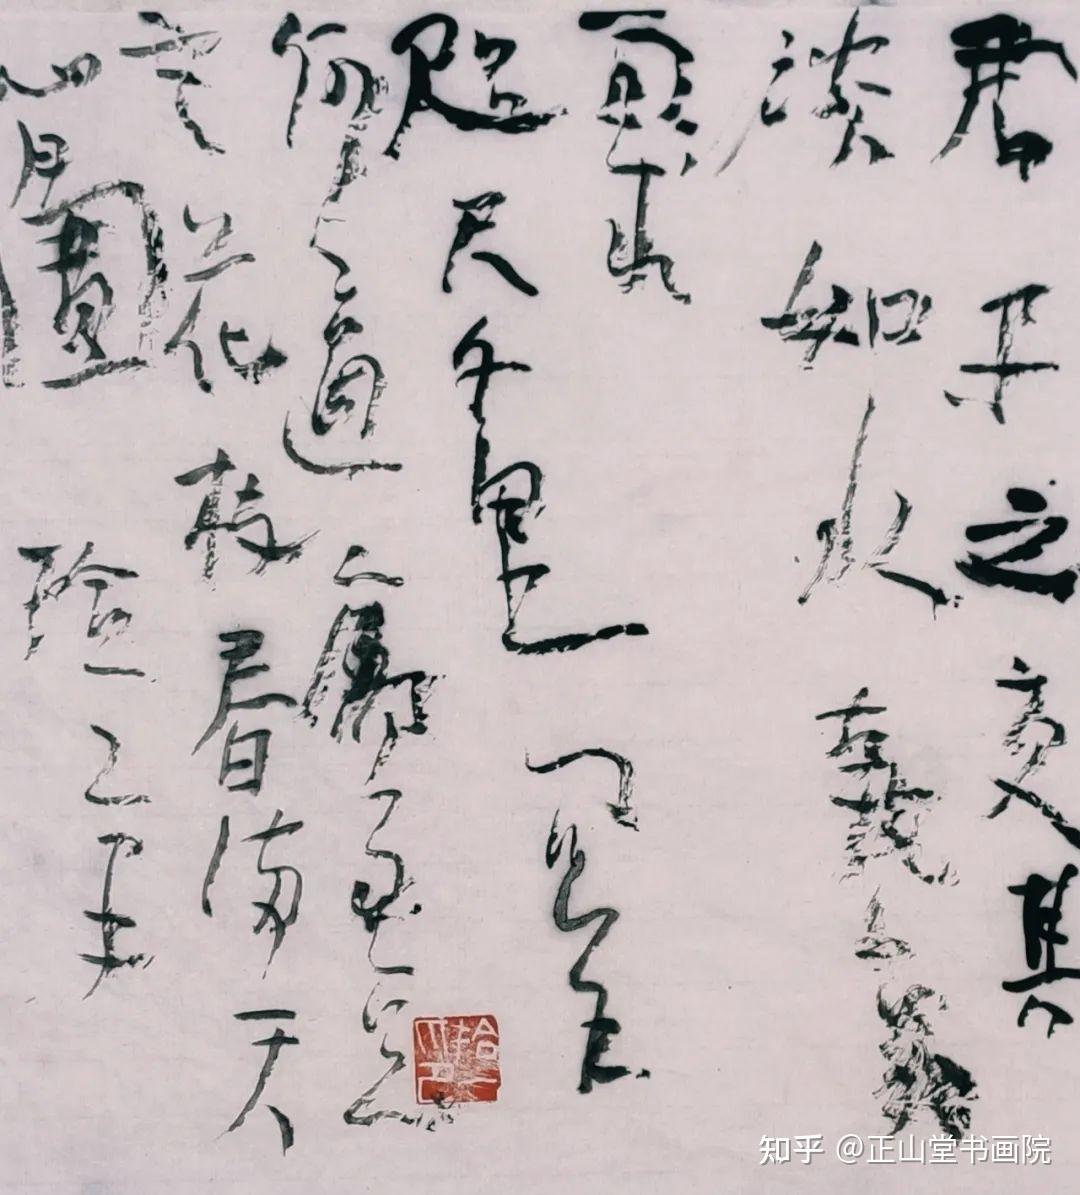 君子之交其
淡如水執象
而求
咫尺千里問余
何適廓爾亡
言花枝春滿天
心月圓
知乎 @正山堂书画院